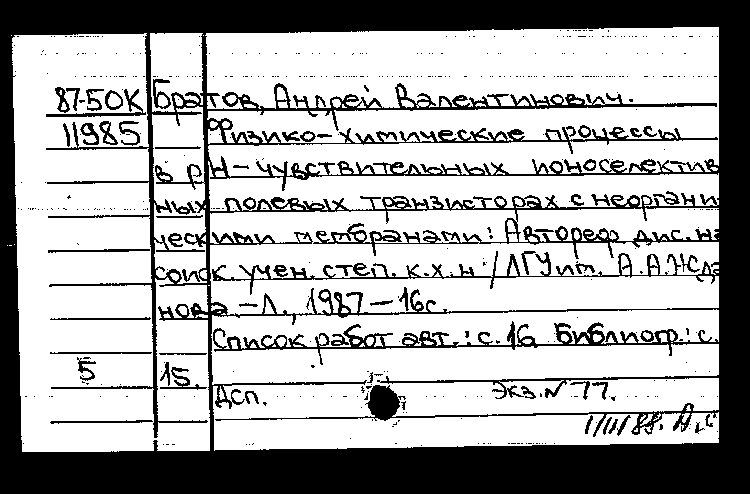 87-50К Братов, Андрей Валентинович.
11985 Физико-химические процессы
в pH-чувствительных ионоселектив
ных полевых транзисторах с неоргани
ческими мембранами: Автореф дис. на
соиск. учен. степ. к.х.н /ЛГУ им. А.А.Жда
нова -Л., 1987 - 16с.
Список работ авт.: с. 16 Библиогр.: с.
5 15.
Дсп. Экз. N 77.
1/III 88.